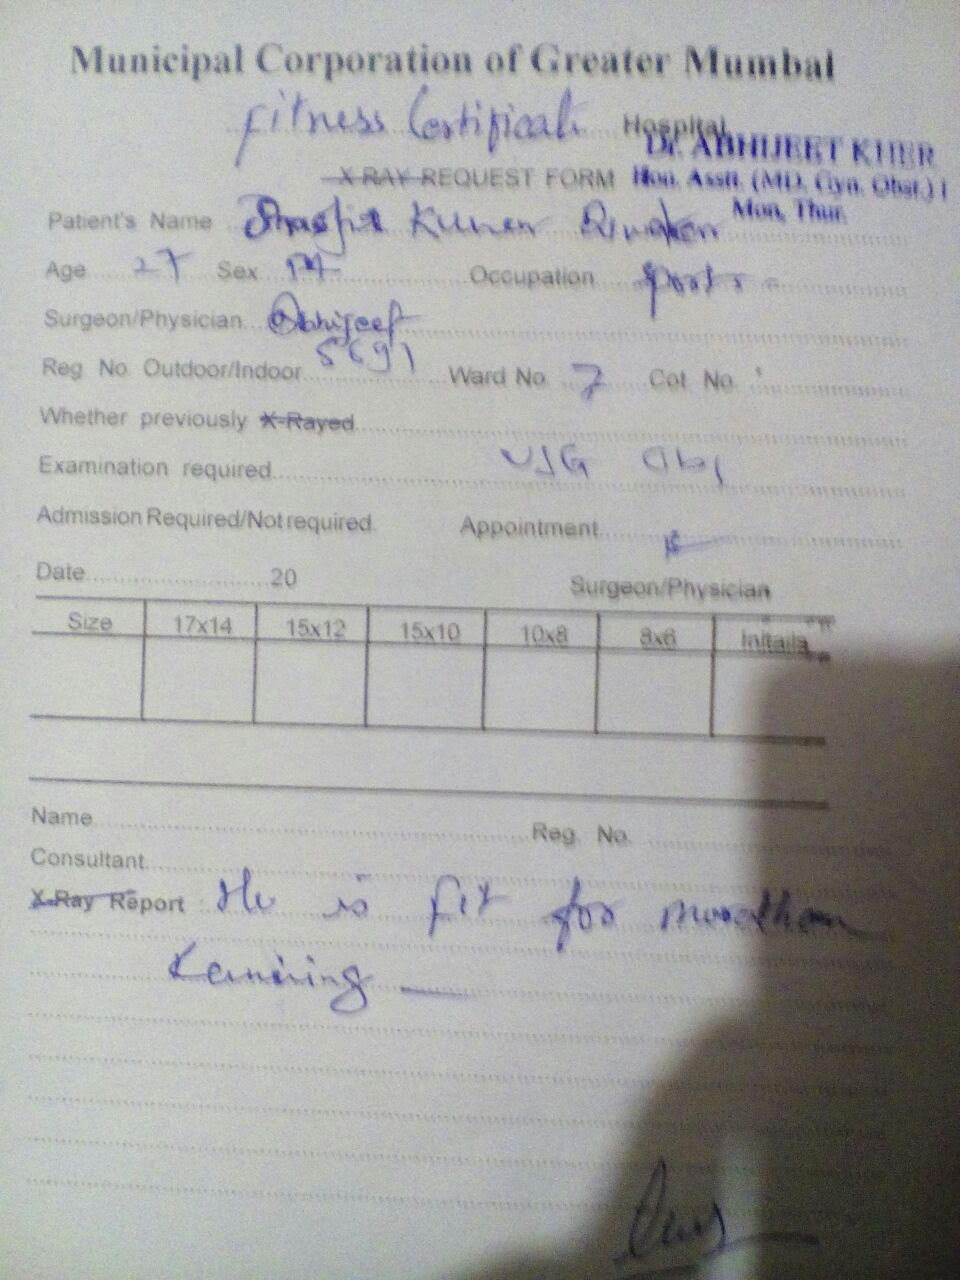 Municipal Corporation of Greater Mumbai
Fitness Certificate Hospital
Dr. ABHIJEET KHER
X-RAY REQUEST FORM Hon. Asstt. (MD. Gyn. Obst.)
Mon, Thur.
Patient's Name Kumar
Age 27 Sex M Occupation
Surgeon/Physician Abhijeet
Reg. No. Outdoor/Indoor 5691 Ward No. 7 Cot. No.
Whether previously X-Rayed
Examination required USG
Admission Required/Not required. Appointment
Date 20 Surgeon/Physician
Size 17x14 15x12 15x10 10x8 8x6 Initails
Name Reg. No.
Consultant
X-Ray Report He is fit for